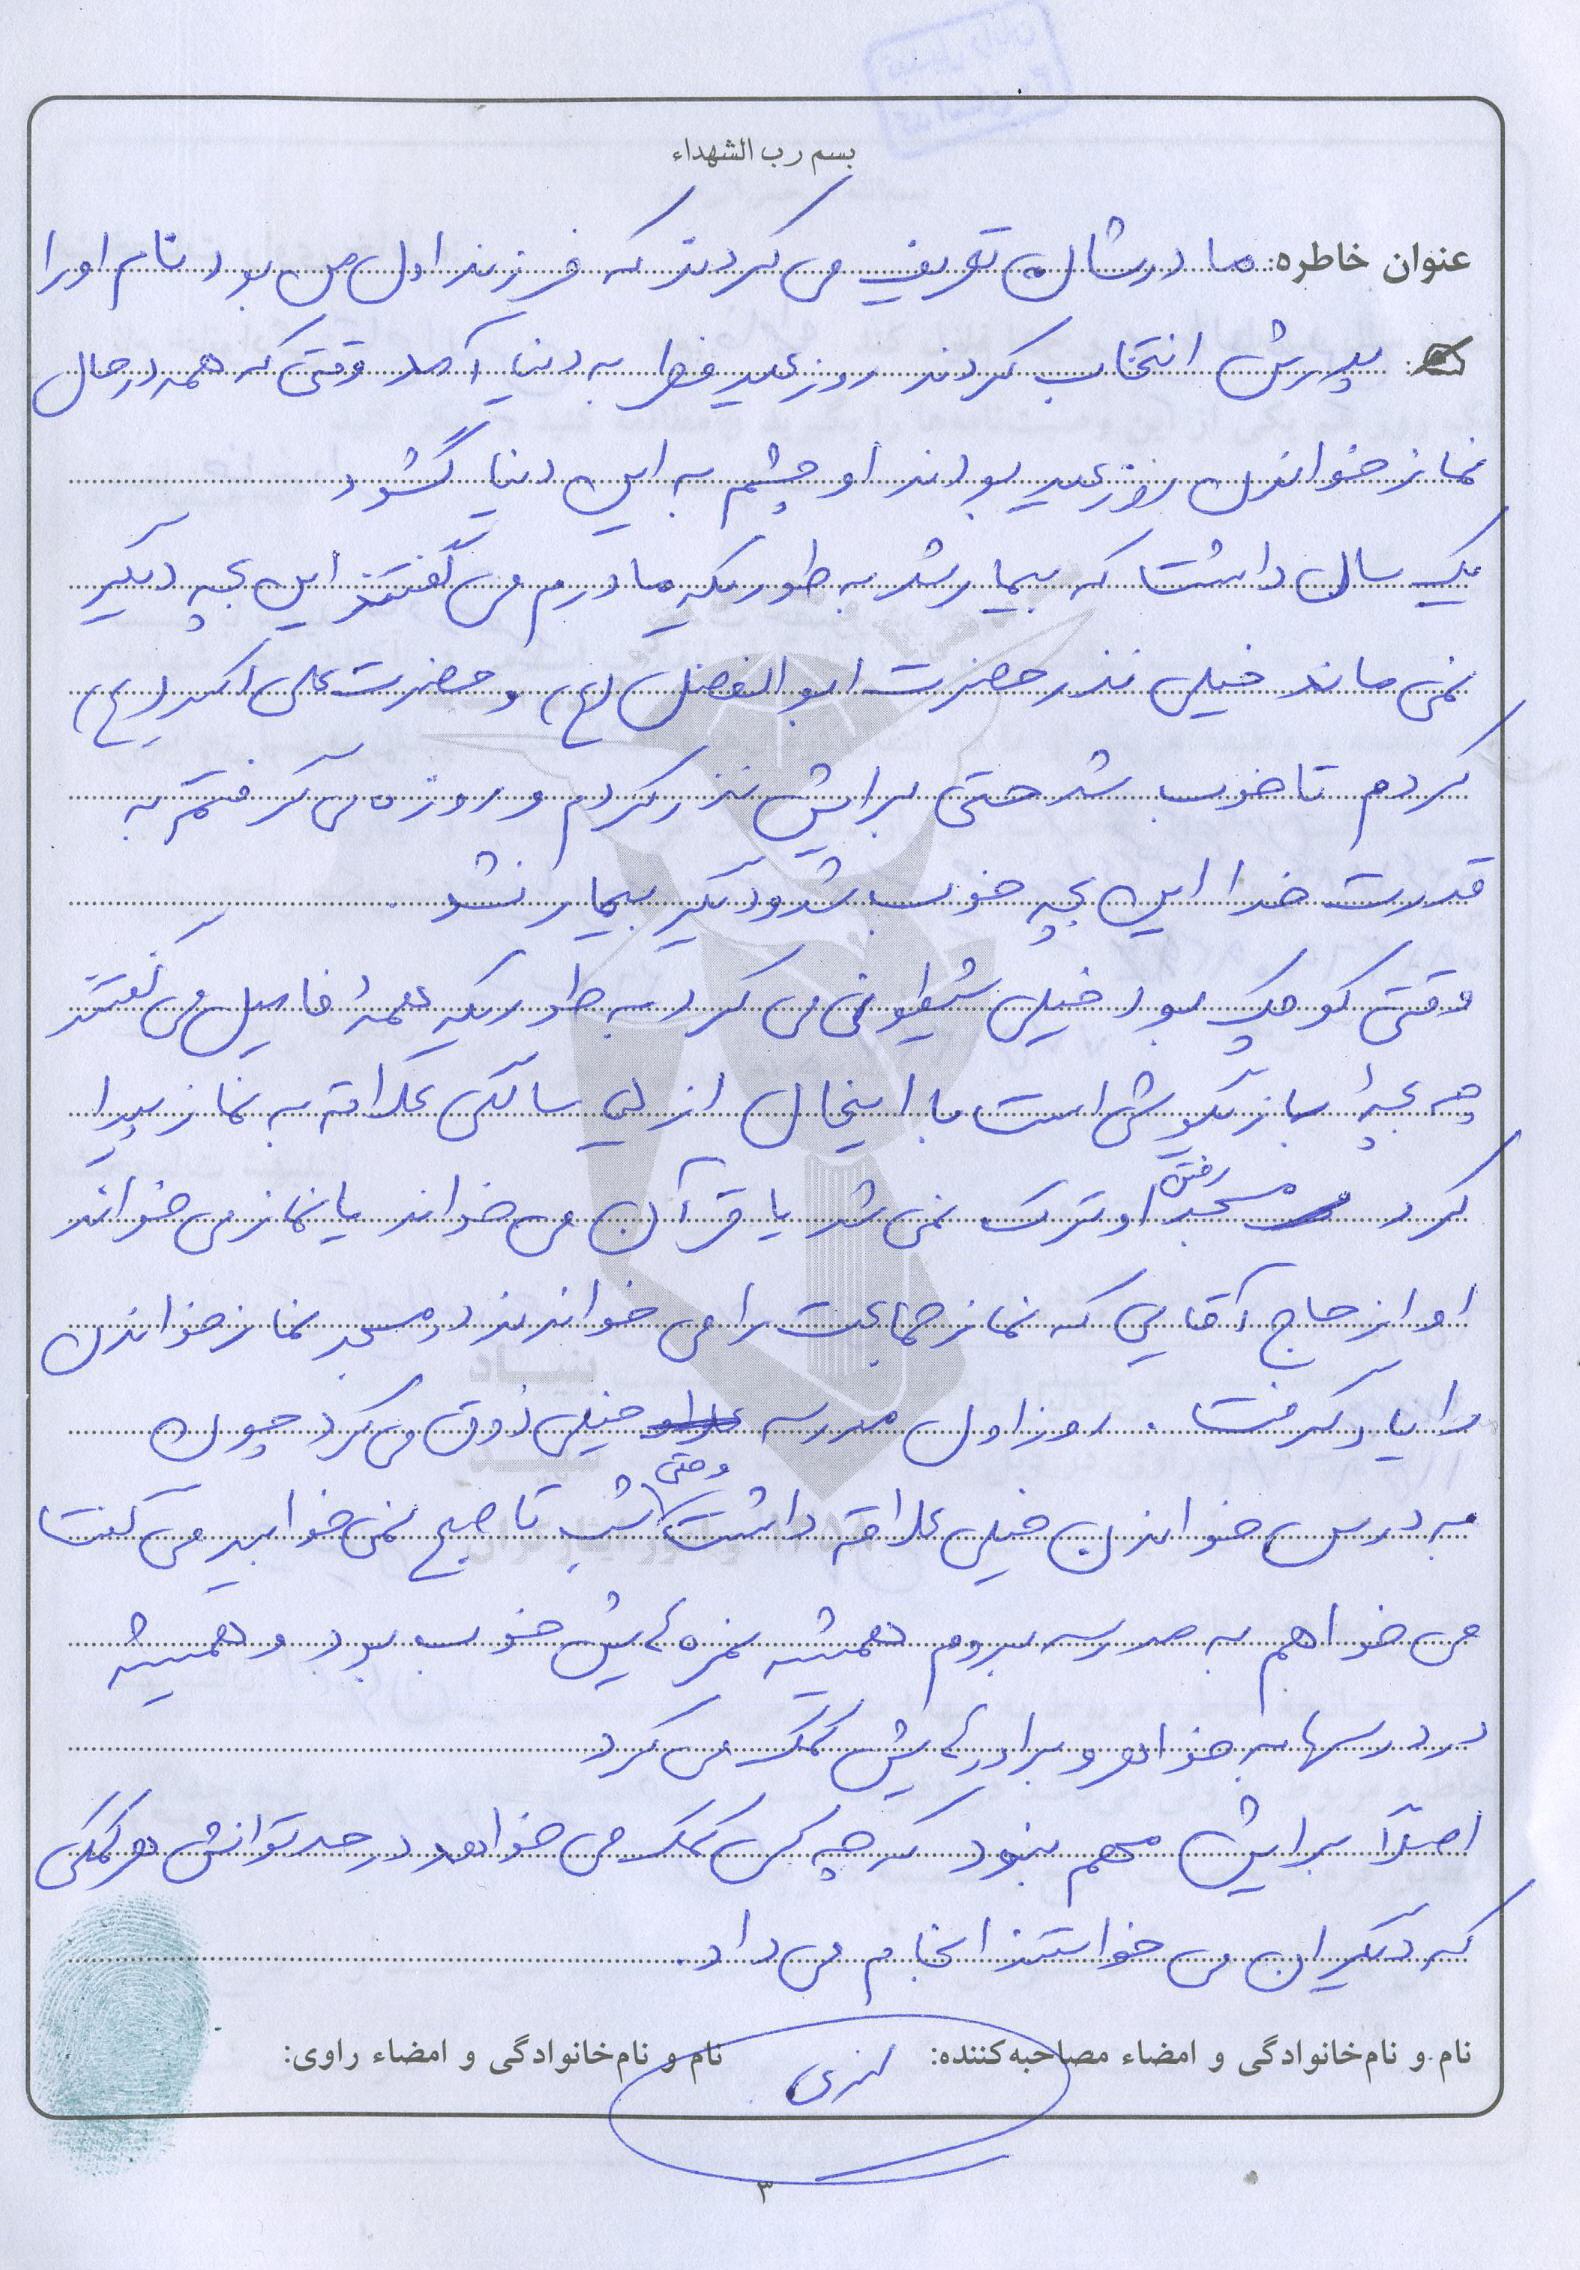 بسم رب الشهداء
عنوان خاطره: مادرشان تعریف می کردند که فرزند اول من بود نام او را
پدرش انتخاب کردند روز عید فطر به دنیا آمد وقتی که همه در حال
نماز خواندن روز عید بودند او چشم به این دنیا گشود
یک سال داشت که بیمار شد به طوریکه مادرم می گفتند این بچه دیگر
نمی ماند خیلی نذر حضرت ابوالفضل (ع) و حضرت علی اکبر (ع)
کردم تا خوب شد حتی برایش نذر کردم و روزه می گرفتم به
قدرت خدا این بچه خوب شد و دیگر بیمار نشد .
وقتی کوچک بود خیلی شیطونی می کرد به طوریکه همهٔ فامیل می گفتند
چه بچهٔ بازیگوشی است با اینحال از سالگی علاقه به نماز پیدا
کرد مسجد رفتن او ترک نمی شد یا قرآن می خواند یا نماز می خواند
او از حاج آقایی که نماز جماعت را می خواندند در مسجد نماز خواندن
را یاد گرفت . روز اول مدرسه خیلی ذوق می کرد چون
به درس خواندن خیلی علاقه داشت وحتی شب تا صبح نمی خوابید می گفت
می خواهم به مدرسه بروم همیشه نمره هایش خوب بود و همیشه
در درسها به خواهر و برادرهایش کمک می کرد
اصلاً برایش مهم نبود که چه کسی کمک می خواهد در حد توانش هر کمکی
که دیگران می خواستند انجام می داد.
نام و نام‌خانوادگی و امضاء مصاحبه‌کننده: نام و نام‌خانوادگی و امضاء راوی:
۳